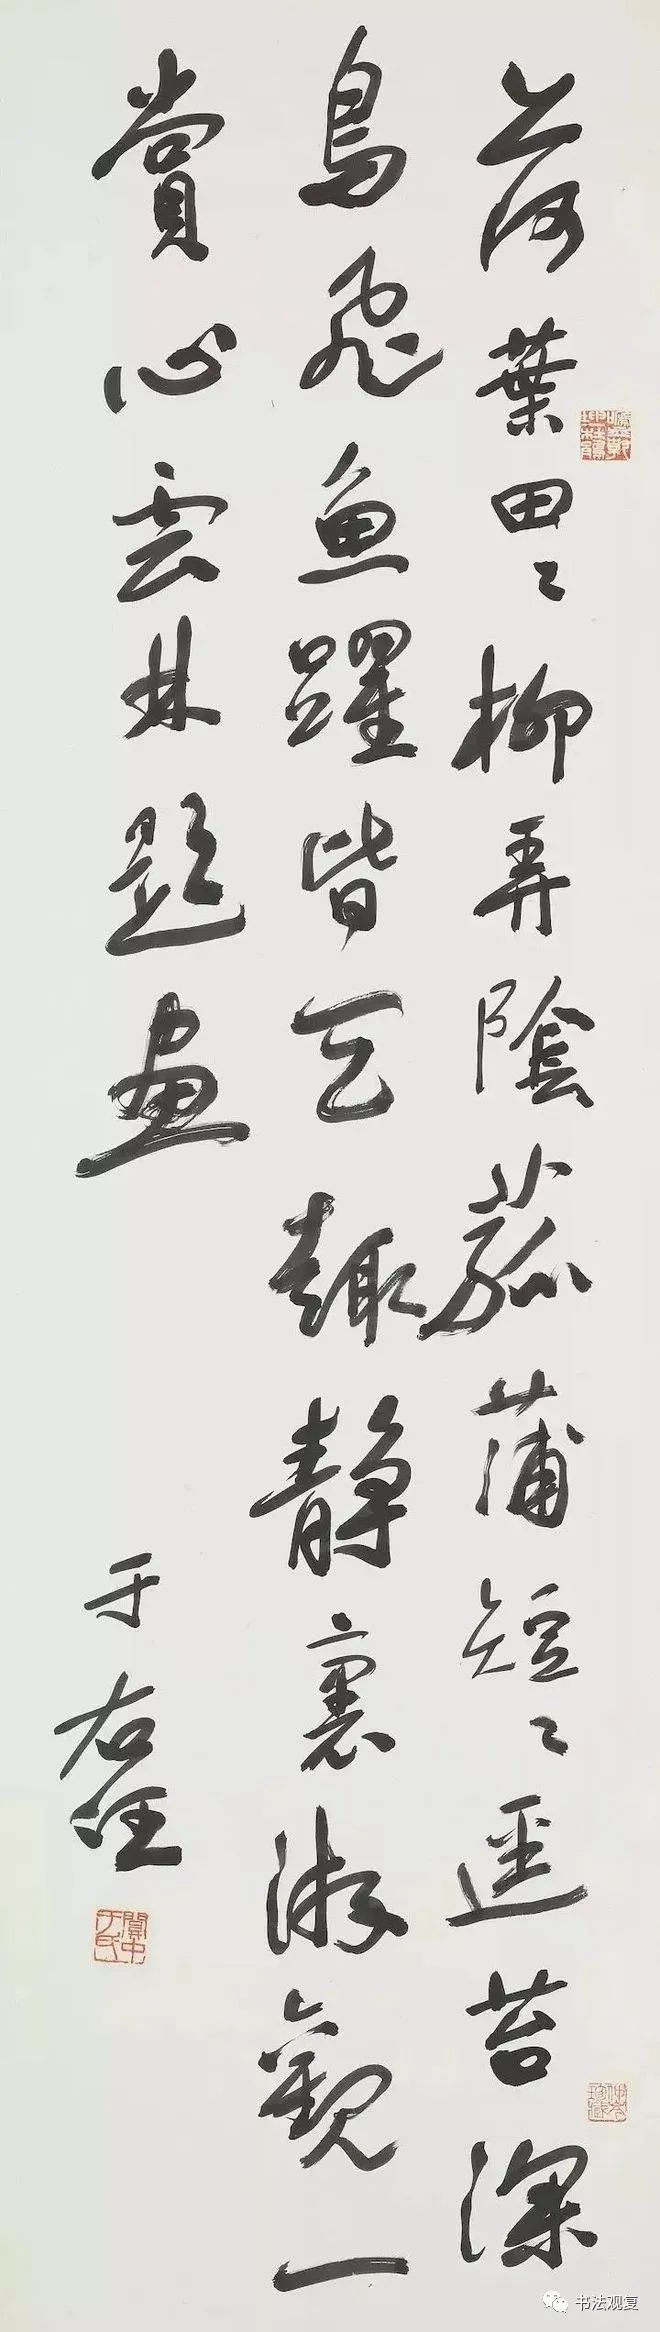 荷葉田〻柳弄陰菰蒲短〻逕苔深
鳥飛魚躍皆天趣靜裏游觀一
賞心雲林題畫
于右任
關中于氏
书法观复